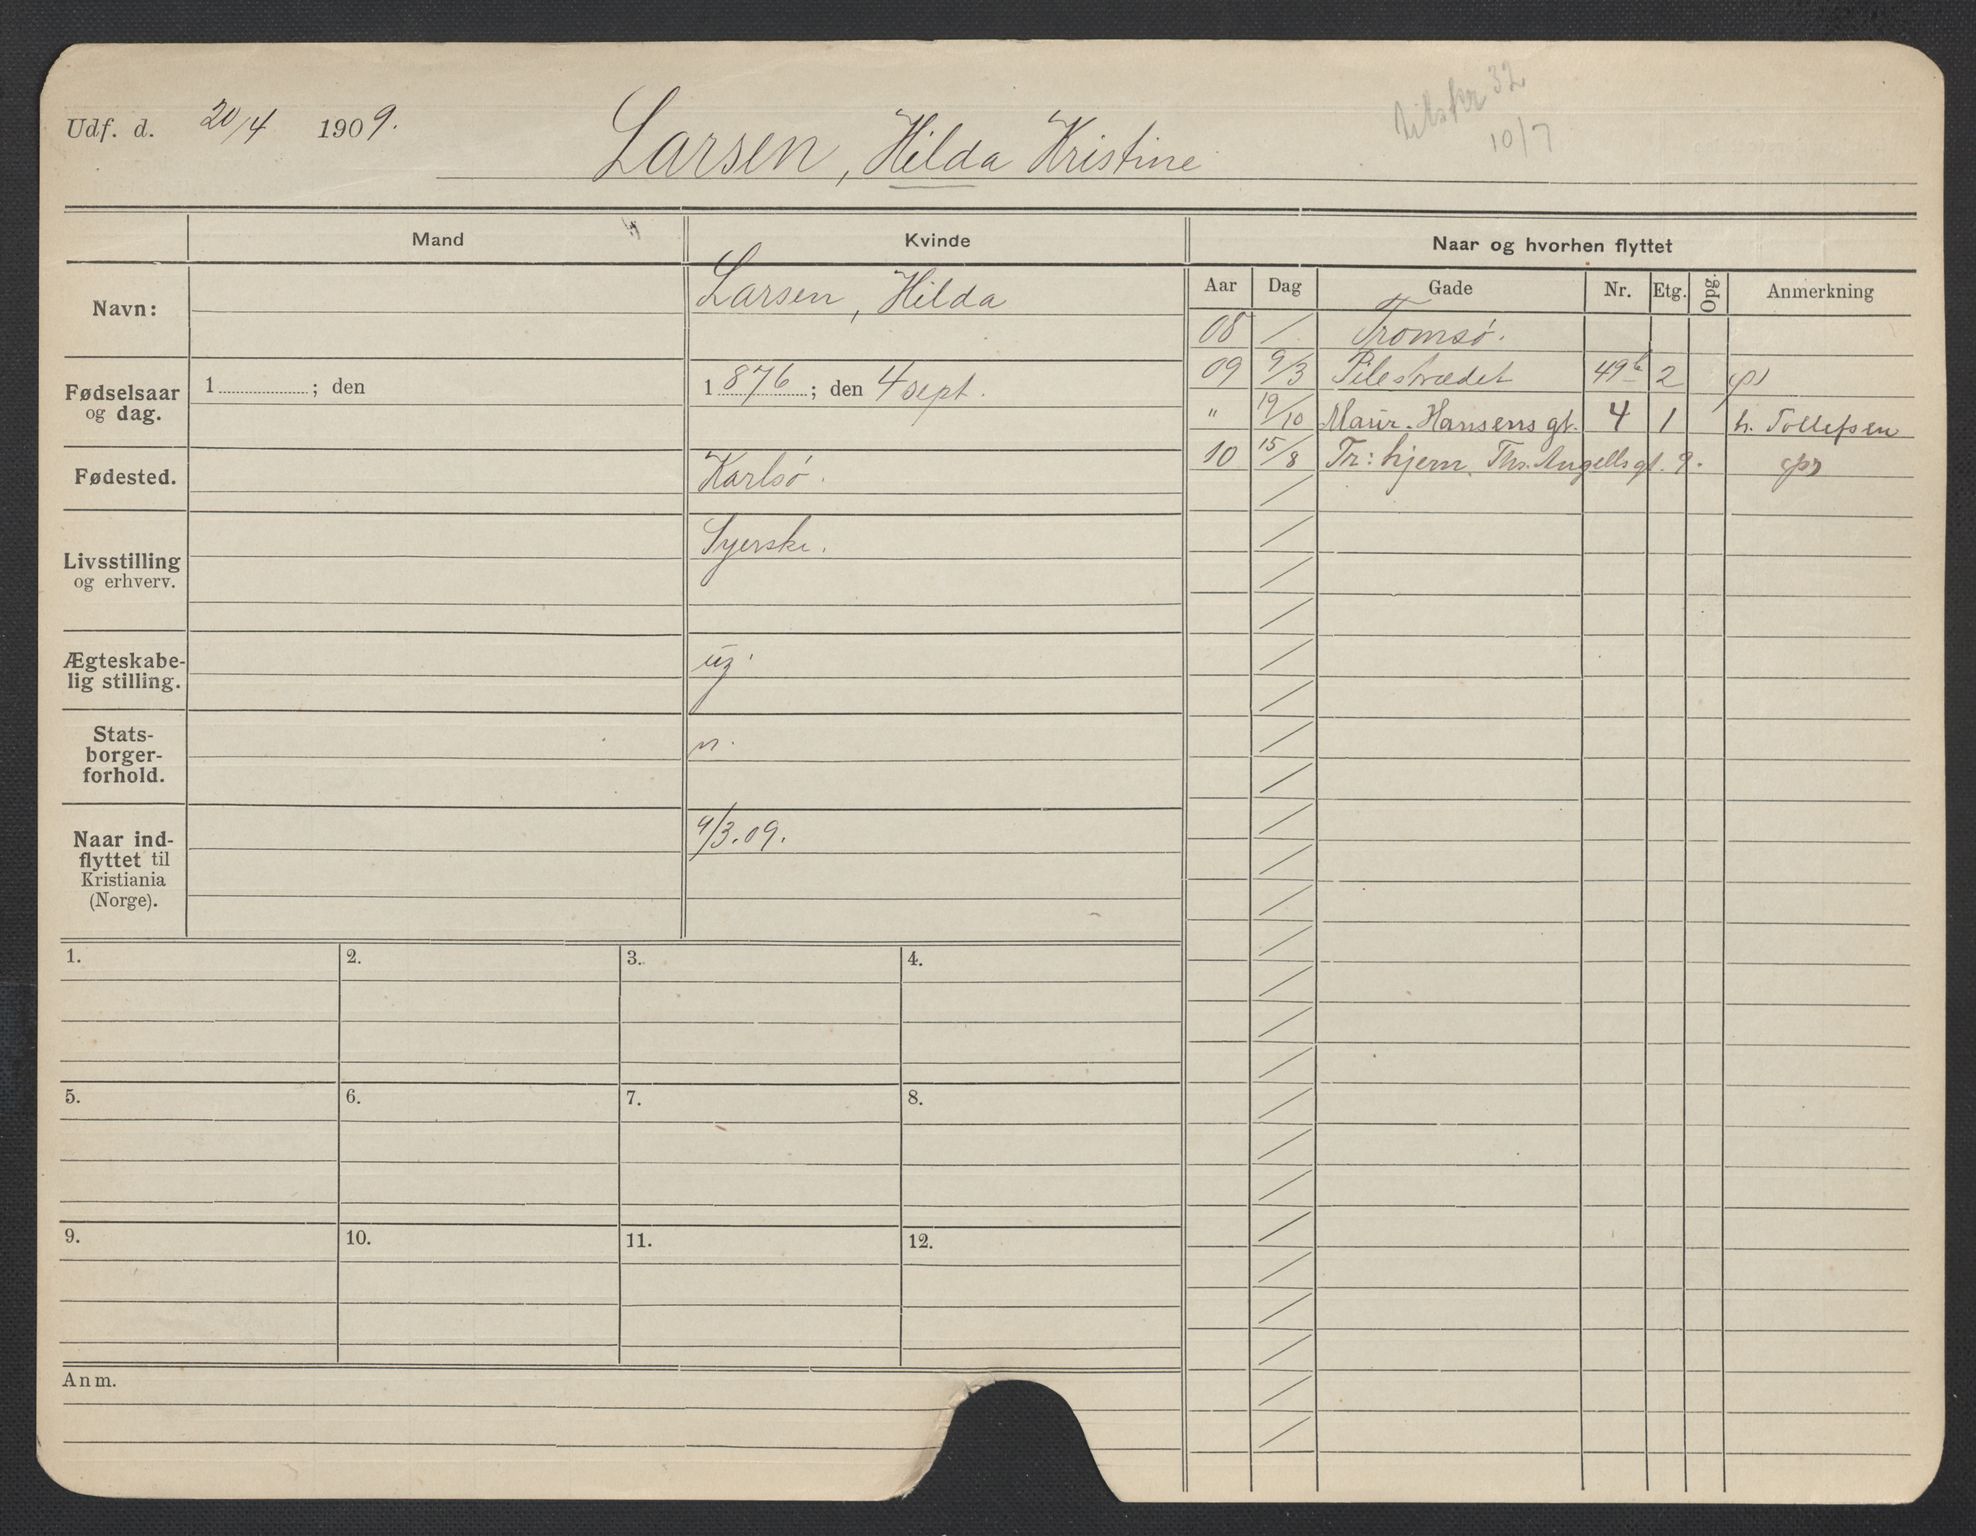 Udf. d. 20/4 1909.
Larsen, Hilda Kristine
32
10/7
Mand
Kvinde
Naar og hvorhen flyttet
Navn:
Larsen, Hilda
Fødselsaar og dag.
1 ; den
1 876 ; den 4 sept.
Fødested.
Karlsø.
Livsstilling og erhverv.
Syerske.
Ægteskabe-
lig stilling.
ug.
Stats-
borger-
forhold.
n.
Naar ind-
flyttet til
Kristiania
(Norge).
9/3.09.
Aar Dag Gade Nr. Etg. Opg. Anmerkning
08 / Tromsø.
09 9/3 Pilestrædet 49b 2
" 19/10 Maur. Hansens gt. 4 1 h. Tollefsen
10 15/8 Tr:hjem. Ths. Angells gt. 9.
1. 2. 3. 4.
5. 6. 7. 8.
9. 10. 11. 12.
Anm.